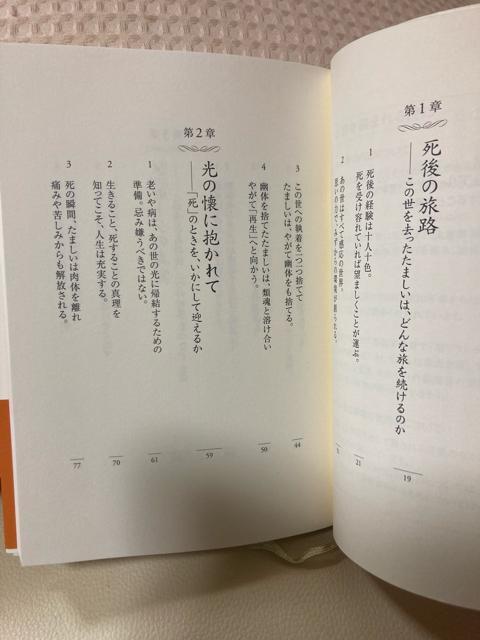 第1章
死後の旅路
――この世を去ったたましいは、どんな旅を続けるのか
19
1
死後の経験は十人十色。
死を受け容れていれば望ましくことが運ぶ。
21
2
あの世はすべて感応の世界。
3
この世への執着を一つ一つ捨てて
たましいは、やがて幽体をも捨てる。
44
4
幽体を捨てたたましいは、類魂と溶け合い
やがて「再生」へと向かう。
50
第2章
光の懐に抱かれて
――「死」のときを、いかにして迎えるか
59
1
老いや病は、あの世の光に帰結するための
準備。忌み嫌うべきではない。
61
2
生きること、死することの真理を
知ってこそ、人生は充実する。
70
3
死の瞬間、たましいは肉体を離れ
痛みや苦しみからも解放される。
77